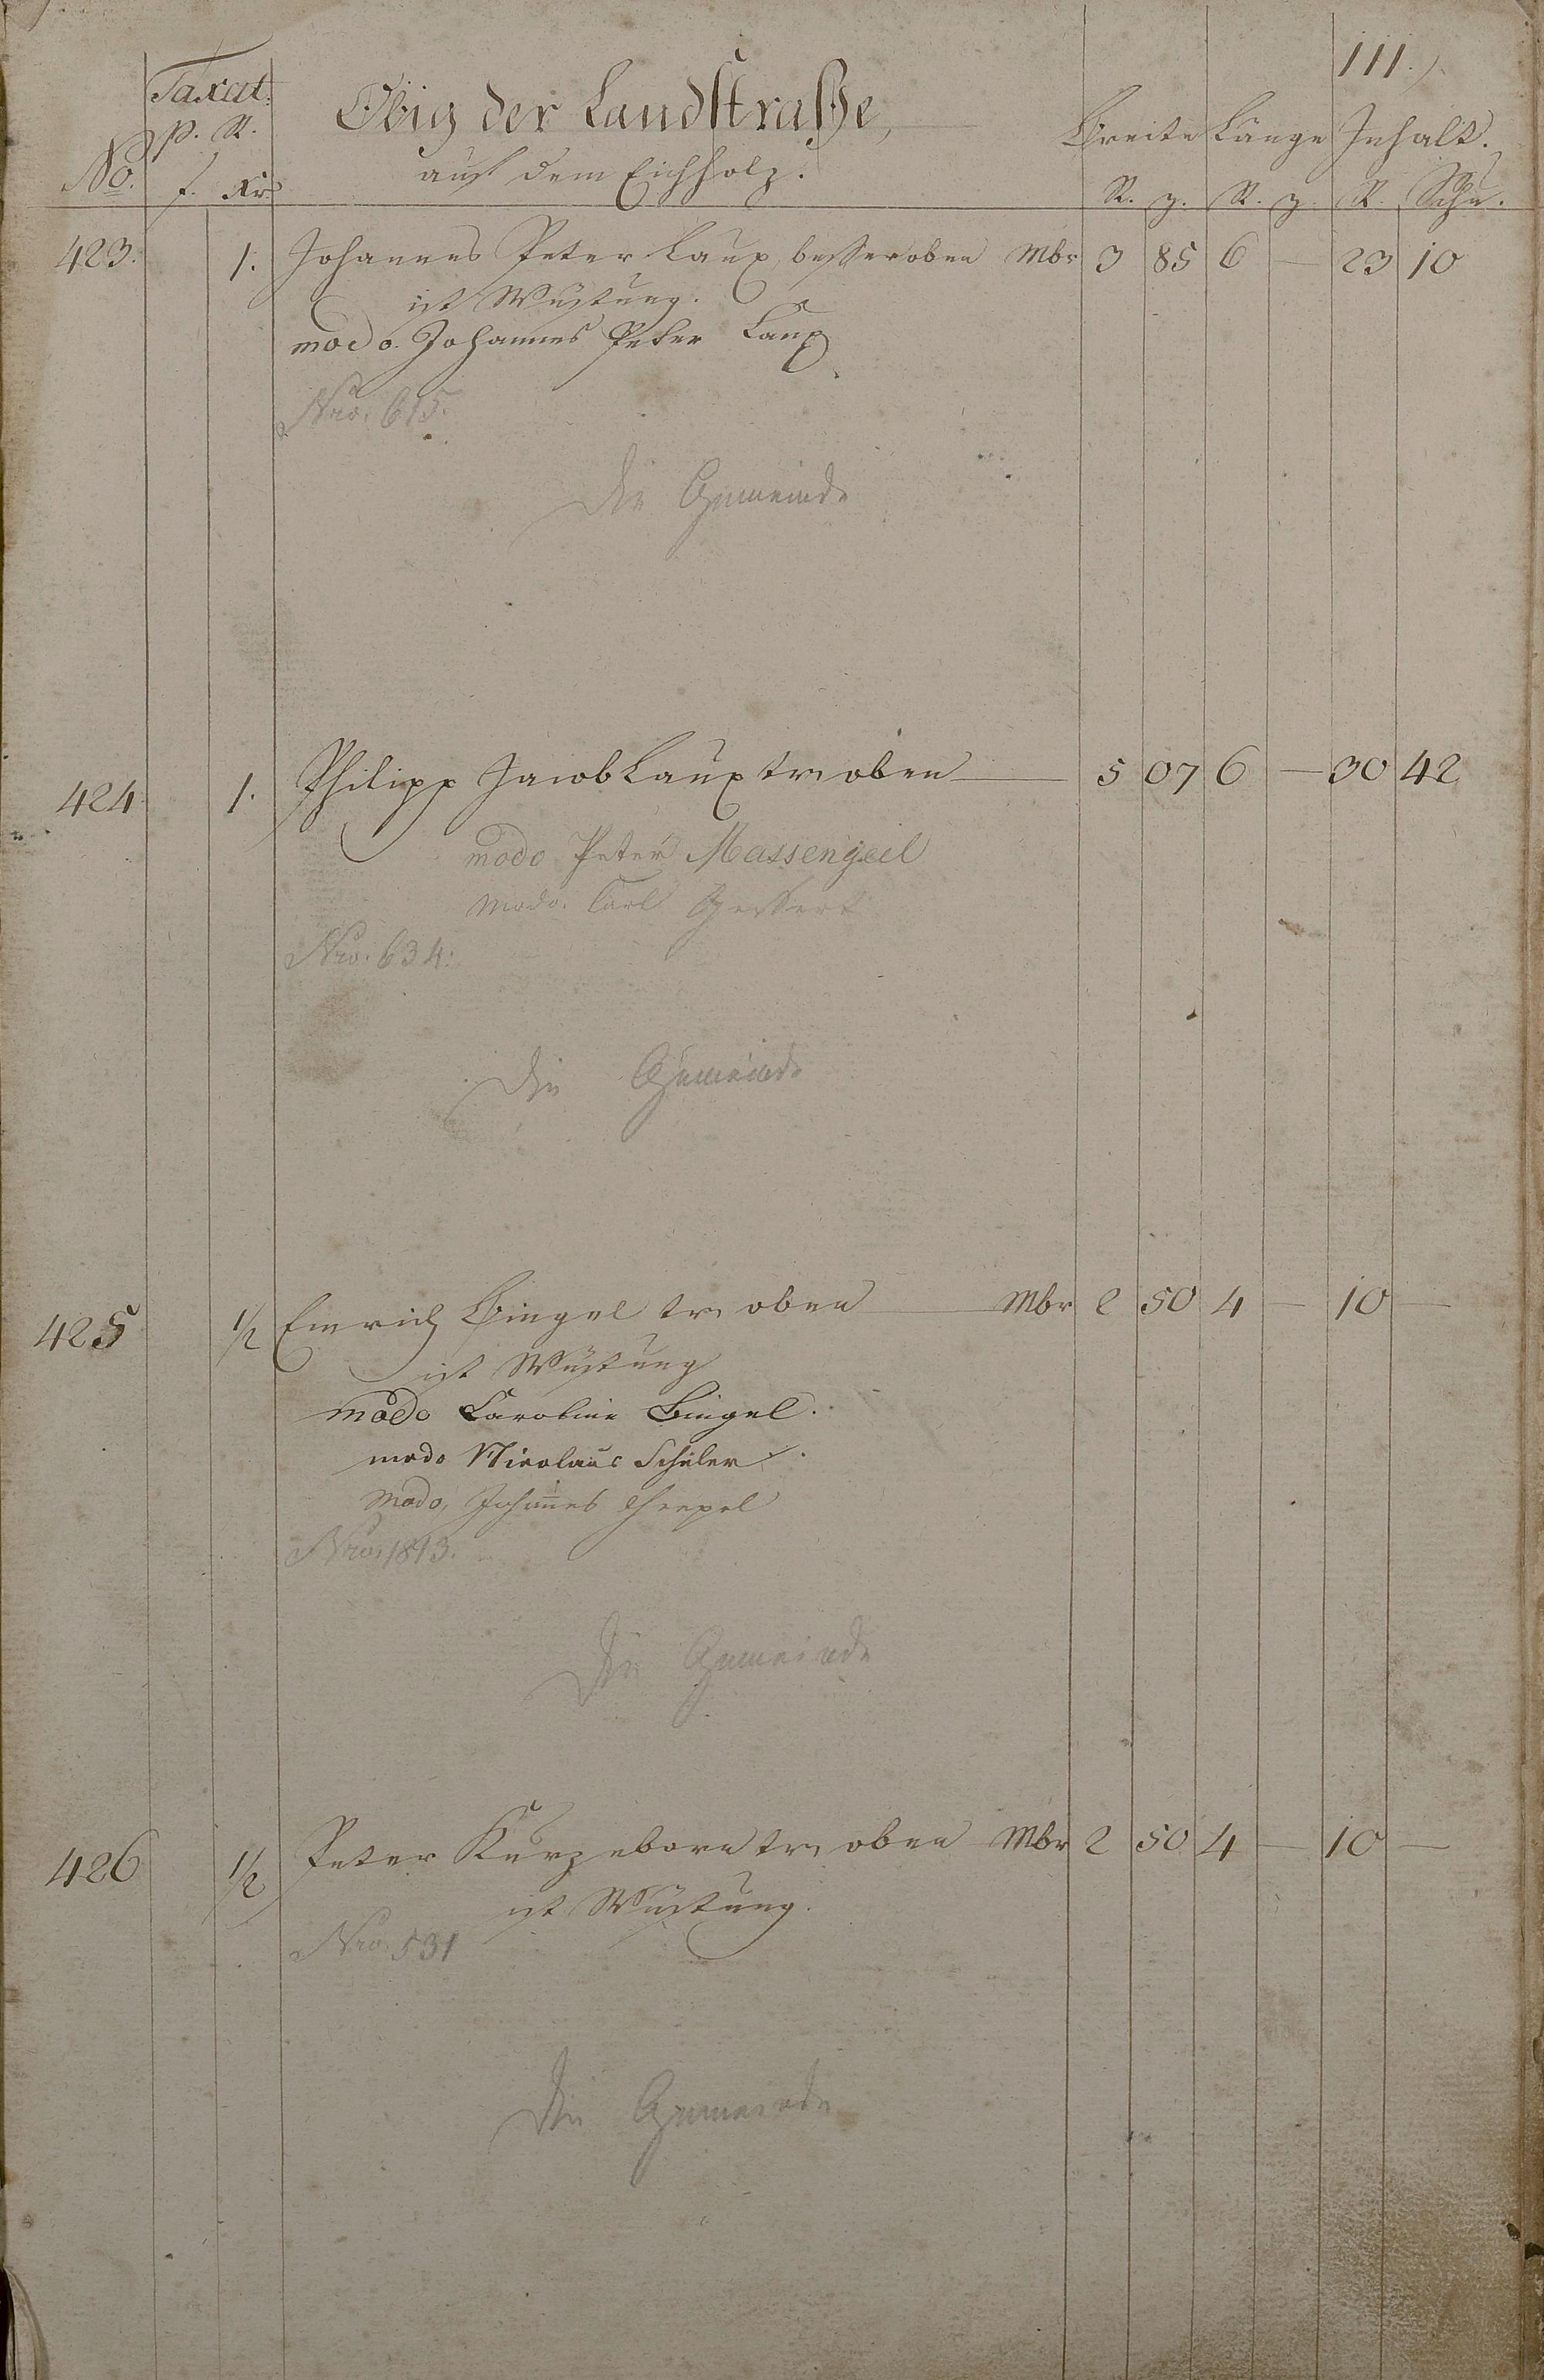 111.
Taxat.
p. R.
No. f. Kr.
Obig der Landstraße,
auf dem Eichholz.
Breite Länge Inhalt.
R. z. R. z. R. Schu.
423. 1. Johannes Peter Laux besser oben Mbr 3 85 6 — 23 10
ist Wüstung.
modo Johannes Peter Laux
Nro. 615.
Die Gemeinde
424 1. Philipp Jacob Laux tr. oben — 5 07 6 — 30 42
modo Peter Massengeil
modo. Carl Gessert
Nro. 634.
Die Gemeinde
425 1/2 Emrich Bingel tr. oben — Mbr 2 50 4 — 10 —
ist Wüstung
modo Caroline Bingel.
modo Nicolaus Schuler.
modo, Johannes
Nro. 1813.
Die Gemeinde
426 1/2 Peter Kurzeborn tr. oben Mbr 2 50 4 — 10 —
ist Wüstung.
Nro. 531
Die Gemeinde